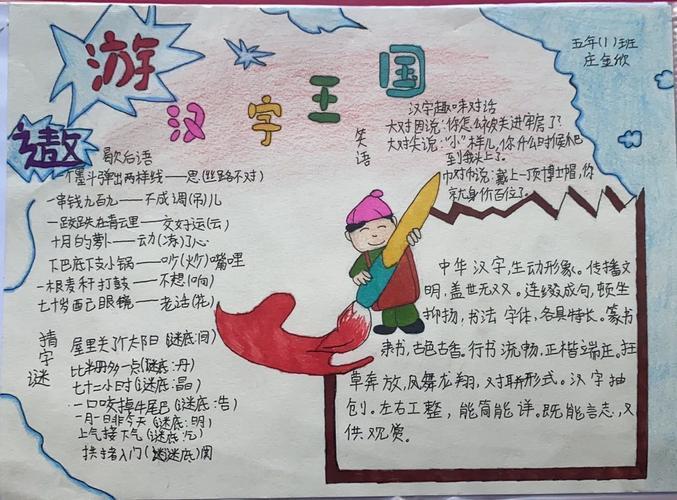 遨游
汉字王国
五年(1)班
庄金欣
笑语
汉字趣味对话
大对因说:你怎么被关进牢房了?
大对尖说:“小”样儿,你什么时候爬
到我头上了。
巾对币说:戴上一顶博士帽,你
就身价百倍了。
歇后语
一个墨斗弹出两样线——思(丝路不对)
一串钱九百九——不成调(吊)儿
一跤跌在青云里——交好运(云)
十月的萝卜——动(冻)了心
下巴底下支小锅——吵(炒)嘴哩
一根麦秆打鼓——不想(响)
七十岁配眼镜——老话(花)
猜字谜
屋里关了个太阳(谜底:间)
比半多一点(谜底:丹)
七十二小时(谜底:晶)
一口咬掉牛尾巴(谜底:告)
一月一日非今天(谜底:明)
上气接下气(谜底:乞)
拱猪入门(谜底)阂
中华汉字,生动形象。传播文
明,盖世无双。连缀成句,顿生
抑扬,书法字体,各具特长。篆书
隶书,古色古香。行书流畅,正楷端正。狂
草奔放,凤舞龙翔,对联形式。汉字独
创。左右工整,能简能详。既能言志,又
供观赏。